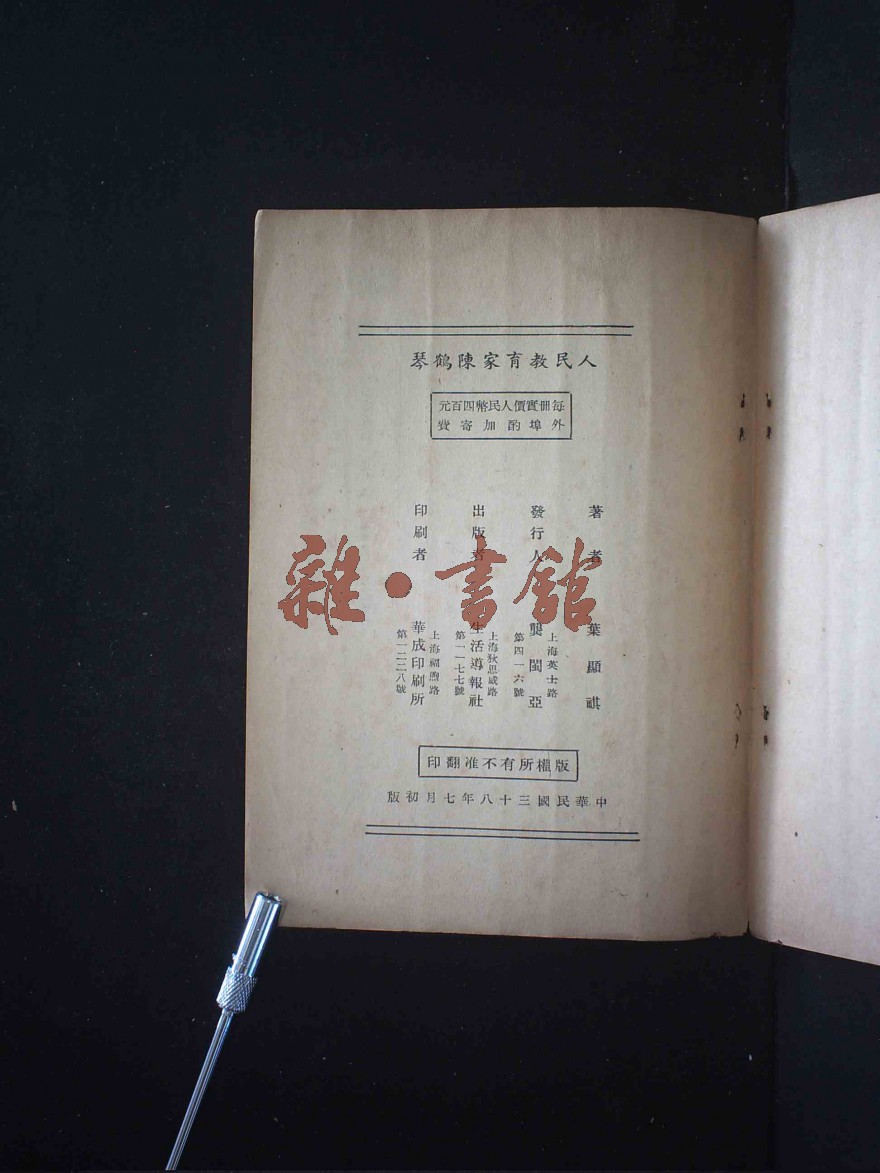 人民教育家陳鶴琴
每冊實價人民幣四百元
外埠酌加寄費
著者 葉顯祺
發行人 龔閩亞
上海英士路
第四一六號
出版者 生活導報社
上海狄思威路
第一一七七號
印刷者 華成印刷所
上海福煦路
第一二二八號
版權所有不准翻印
中華民國三十八年七月初版
雜·書館